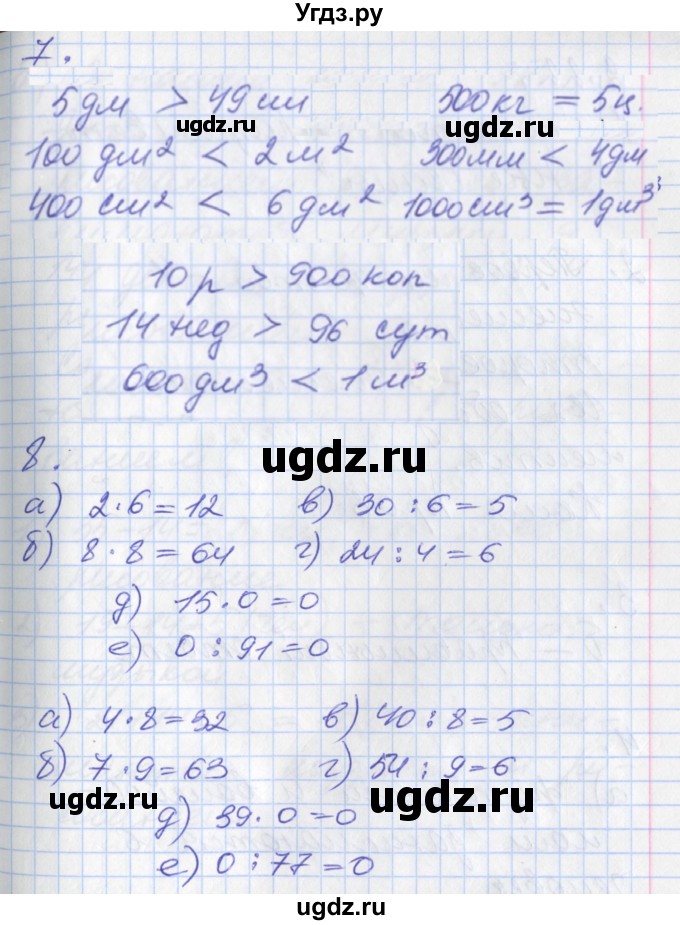 Угдз.ру
7.
5 дм > 49 см 500 кг = 5 ц.
ugdz.ru ugdz.ru
100 дм² < 2 м² 300 мм < 4 дм
400 см² < 6 дм² 1000 см³ = 1 дм³
10 р > 900 коп
14 нед > 96 сут
600 дм³ < 1 м³
8.
ugdz.ru
а) 2 · 6 = 12 в) 30 : 6 = 5
б) 8 · 8 = 64 г) 24 : 4 = 6
д) 15 · 0 = 0
е) 0 : 91 = 0
а) 4 · 8 = 32 в) 40 : 8 = 5
б) 7 · 9 = 63 г) 54 : 9 = 6
ugdz.ru ugdz.ru
д) 39 · 0 = 0
е) 0 : 77 = 0
ugdz.ru